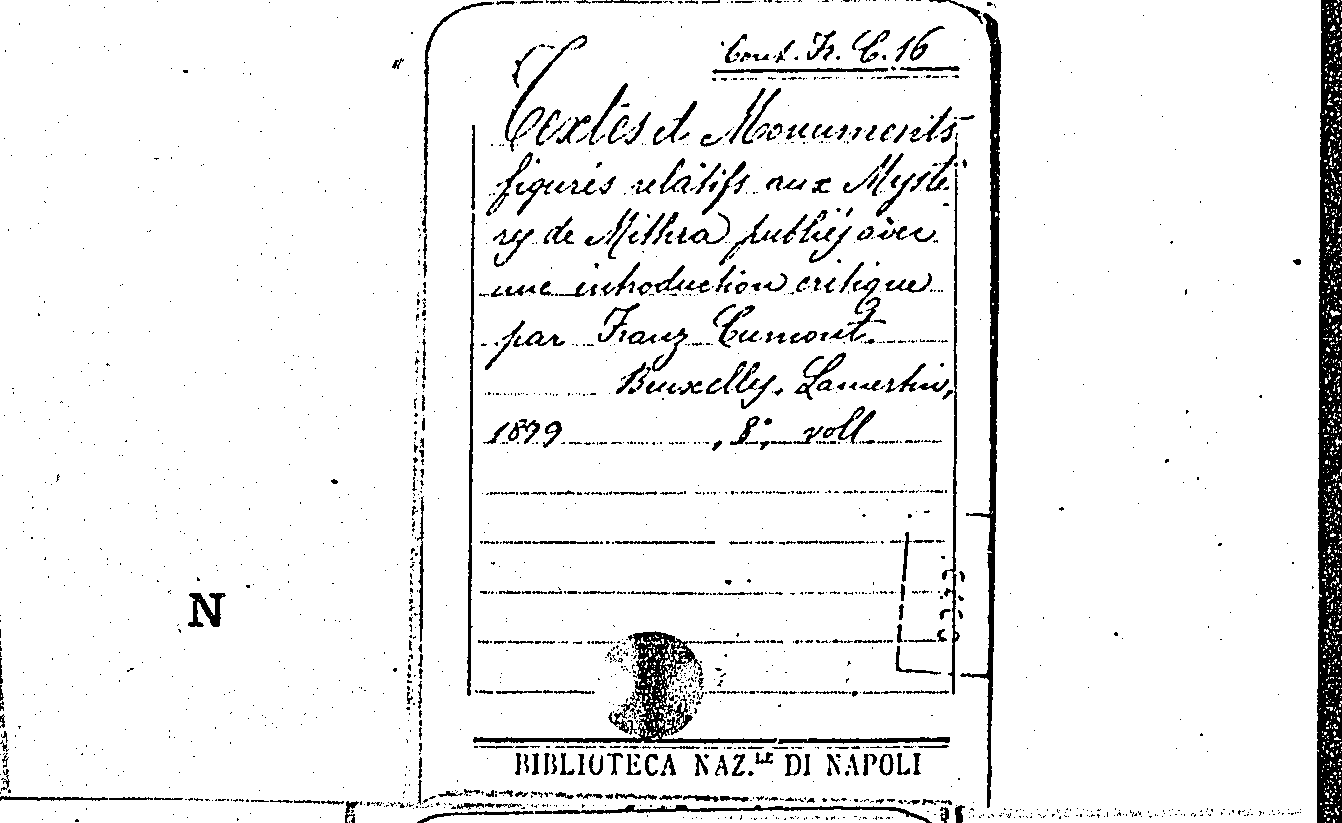 Cont. Fr. C. 16
Textes et Monuments
figurés relatifs aux Mystè
res de Mithra publiés avec
une introduction critique
par Franz Cumont.
Bruxelles, Lamertin,
1899 , 8°, voll
N
BIBLIOTECA NAZ.LE DI NAPOLI